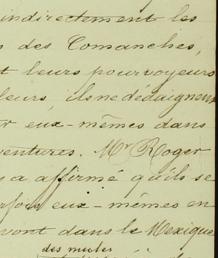 indirectement les
des Comanches,
t leurs pourvoyeurs
leurs, ils ne dédaignent
r eux-mêmes dans
ventures. Mr Roger
a affirmé qu'ils se
rfois eux-mêmes en
vont dans le Mexique
des mules